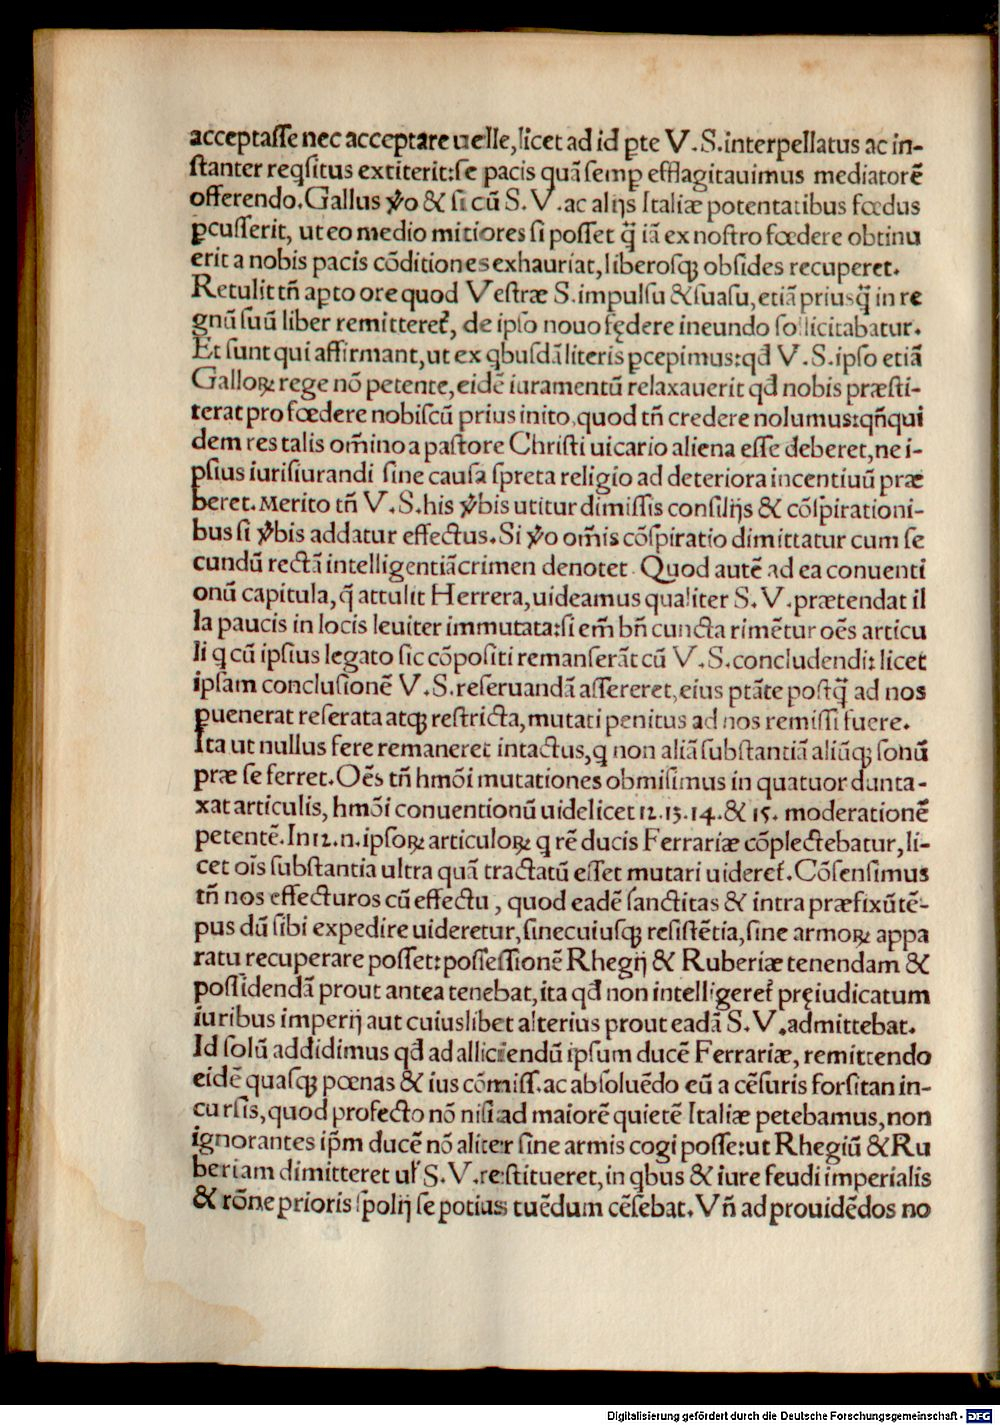 acceptaſſe nec acceptare uelle, licet ad id ꝑte V.S.interpellatus ac in-
ſtanter reqſitus extiterit:ſe pacis quā ſemꝑ efflagitauimus mediatorē
offerendo.Gallus ꝟo & ſi cū S.V.ac alijs Italiæ potentatibus fœdus
ꝑcuſſerit, ut eo medio mitiores ſi poſſet q̃ iā ex noſtro fœdere obtinu
erit a nobis pacis cōditiones exhauriat, liberoſqꝫ obſides recuperet.
Retulit tñ aꝑto ore quod Veſtræ S.impulſu & ſuaſu, etiā priusq̃ in re
gnū ſuū liber remitteret̃, de ipſo nouo fędere ineundo ſollicitabatur.
Et ſunt qui affirmant, ut ex qbuſdā literis ꝑcepimus:qđ V.S.ipſo etiā
Galloꝝ rege nō petente, eidē iuramentū relaxauerit qđ nobis præſti-
terat pro fœdere nobiſcū prius inito, quod tñ credere nolumus:qñqui
dem res talis om̄ino a paſtore Chriſti uicario aliena eſſe deberet, ne i-
pſius iurisiurandi ſine cauſa ſpreta religio ad deteriora incentiuū præ
beret. Merito tñ V.S.his ꝟbis utitur dimiſſis conſilijs & cōſpirationi-
bus ſi ꝟbis addatur effectus.Si ꝟo om̄is cōſpiratio dimittatur cum ſe
cundū rectā intelligentiā crimen denotet. Quod autē ad ea conuenti
onū capitula, q̃ attulit Herrera, uideamus qualiter S.V.prætendat il
la paucis in locis leuiter immutata:ſi em̄ bñ cuncta rimētur oēs articu
li q cū ipſius legato ſic cōpoſiti remanſerāt cū V.S.concludendi: licet
ipſam concluſionē V.S.reſeruandā aſſereret, eius ptāte poſtq̃ ad nos
ꝑuenerat reſerata atqꝫ reſtricta, mutati penitus ad nos remiſſi fuere.
Ita ut nullus fere remaneret intactus, q non aliā ſubſtantiā aliūqꝫ ſonū
præ ſe ferret.Oēs tñ hmōi mutationes obmiſimus in quatuor dunta-
xat articulis, hmōi conuentionū uidelicet 12.13.14.& 15. moderationē
petentē.In 12.n.ipſoꝝ articuloꝝ q rē ducis Ferrariæ cōplectebatur, li-
cet oīs ſubſtantia ultra quā tractatū eſſet mutari uideret̃. Cōſenſimus
tñ nos effecturos cū effectu, quod eadē ſanctitas & intra præfixū tē-
pus dū ſibi expedire uideretur, ſine cuiuſqꝫ reſiſtētia, ſine armoꝝ appa
ratu recuperare poſſet:poſſeſſionē Rhegij & Ruberiæ tenendam &
poſſidendā prout antea tenebat, ita qđ non intelligeret̃ pręiudicatum
iuribus imperij aut cuiuslibet alterius prout eadā S.V.admittebat.
Id ſolū addidimus qđ ad alliciendū ipſum ducē Ferrariæ, remittendo
eidē quaſqꝫ pœnas & ius cōmiſſ.ac abſoluēdo eū a cēſuris forſitan in-
curſis, quod profecto nō niſi ad maiorē quietē Italiæ petebamus, non
ignorantes ip̄m ducē nō aliter ſine armis cogi poſſe:ut Rhegiū & Ru
beriam dimitteret ul̃ S.V.reſtitueret, in qbus & iure feudi imperialis
& rōne prioris ſpolij ſe potius tuēdum cēſebat. Vñ ad prouidēdos no
Digitalisierung gefördert durch die Deutsche Forschungsgemeinschaft - DFG